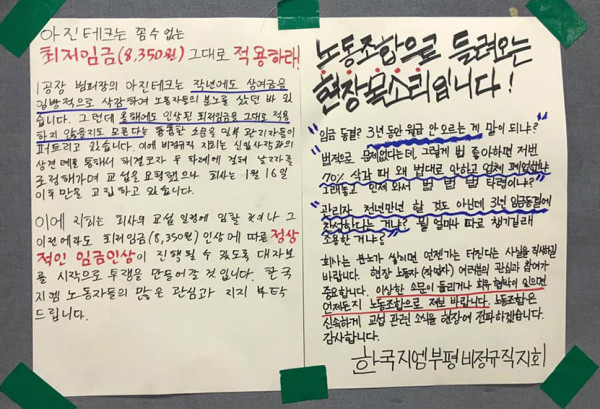 아진테크는 꼼수 없는
최저임금(8,350원) 그대로 적용하라!
1공장 범퍼장의 아진테크는 작년에도 상여금을
일방적으로 삭감하여 노동자들의 분노를 샀던 바 있
습니다. 그런데 올해에도 인상된 최저임금을 그대로 적용
하지 않을지도 모른다는 흉흉한 소문을 일부 관리자들이
퍼트리고 있습니다. 이에 비정규직 지회는 신임사장과의
상견례를 통해서 해결코자 두 차례에 걸쳐 날짜를
조정해가며 교섭을 요청했으나 회사는 1월 16일
이후만을 고집하고 있습니다.
이에 지회는 회사의 교섭 일정에 임할 것이나 그
이전에라도 최저임금(8,350원)인상에 따른 정상
적인 임금인상이 진행될 수 있도록 대자보
를 시작으로 투쟁을 만들어갈 것입니다. 한국
지엠 노동자들의 많은 관심과 지지 부탁
드립니다.
노동조합으로 들려오는
현장목소리입니다!
"임금 동결? 3년 동안 월급 안 오르는 게 말이 되냐?"
"법적으로 문제없다는데, 그렇게 법 좋아하면 저번
70% 삭감 때 왜 법대로 안하고 업체 폐업한다
그래놓고 인제 와서 법 법 법 타령이냐?"
"관리자 천년만년 할 것도 아닌데 3년 임금동결에
찬성한다는 거냐? 뭘 얼마나 따로 챙기길래
조용한 거냐?"
회사는 분노가 쌓이면 언젠가는 터진다는 사실을 직시하길
바랍니다. 현장 노동자(작업자) 여러분의 관심과 참여가
중요합니다. 이상한 소문이 들리거나 회유 협박이 있으면
언제든지 노동조합으로 제보 바랍니다. 노동조합은
신속하게 교섭 관련 소식을 현장에 전파하겠습니다.
감사합니다.
한국지엠부평비정규직지회